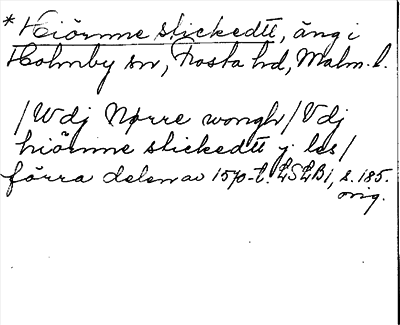 * Hiörnne stickedtt, äng i
Holmby sn, Frosta hd, Malm. l.
/Wdj Nørre wongh/Vdj
hiörnne stickedtt j. les/
förra delen av 1570-t. LSLB1, s. 185.
orig.